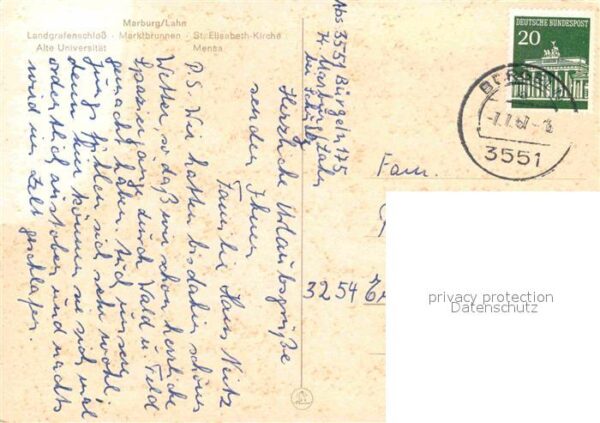 Marburg/Lahn
Landgrafenschloß · Marktbrunnen · St. Elisabeth-Kirche
Alte Universität Mensa
Abs 3551 Bürgeln 175
Kr. Marburg/Lahn
bei
Herzliche Urlaubsgrüße
senden Ihnen
Familie Hans
P.S. Wir hatten bis dahin schönes
Wetter, so daß wir schon herrliche
Spaziergänge durch Wald u. Feld
gemacht haben. Und unsere
Jungs fühlen sich sehr wohl,
denn hier können sie sich mal
ordentlich austoben und nachts
wird im Zelt geschlafen.
DEUTSCHE BUNDESPOST
20
-7.7.67-
3551
Fam.
3254
privacy protection
Datenschutz